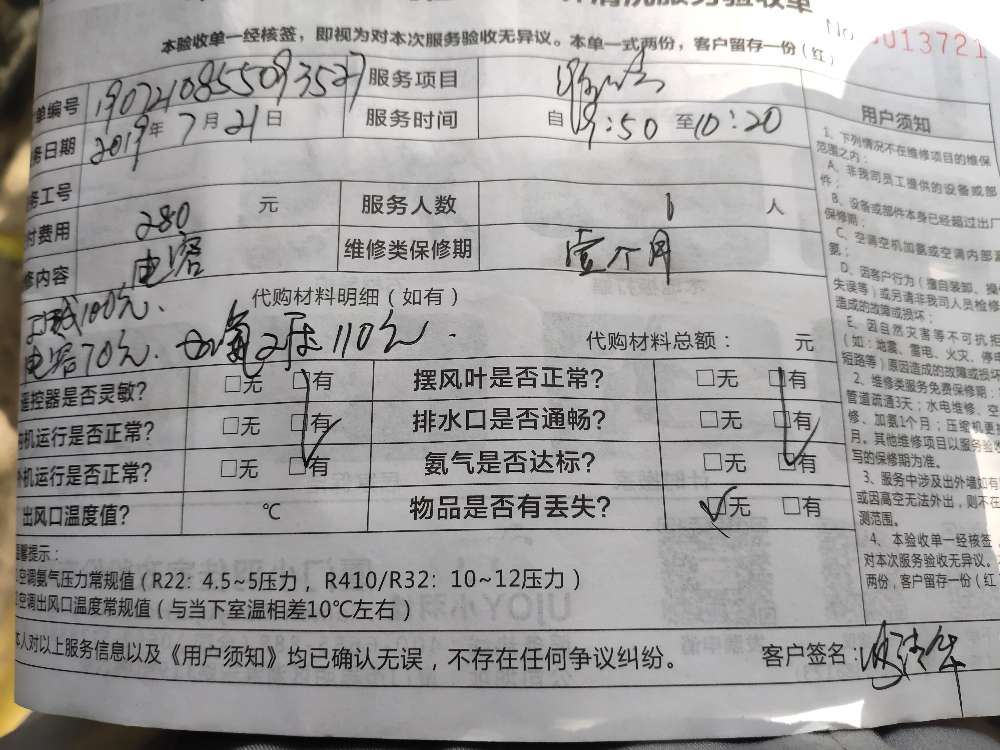 清洗服务验收单
No 0013721
本验收单一经核签，即视为对本次服务验收无异议。本单一式两份，客户留存一份（红）
单编号 1907210855093527 服务项目
务日期 2019年7月21日 服务时间 自 9:50 至 10:20
务工号
付费用 280 元 服务人数 1 人
修内容 电容 维修类保修期 壹个月
代购材料明细（如有）
100元、
电容70元. 加氟 110元.
代购材料总额： 元
遥控器是否灵敏？ □无 □有 摆风叶是否正常？ □无 □有
内机运行是否正常？ □无 □有 排水口是否通畅？ □无 □有
外机运行是否正常？ □无 □有 氨气是否达标？ □无 □有
出风口温度值？ ℃ 物品是否有丢失？ □无 □有
温馨提示：
空调氨气压力常规值（R22：4.5~5压力，R410/R32：10~12压力）
空调出风口温度常规值（与当下室温相差10℃左右）
本人对以上服务信息以及《用户须知》均已确认无误，不存在任何争议纠纷。 客户签名：
用户须知
1、下列情况不在维修项目的维保
范围之内：
A、非我司员工提供的设备或部
件；
B、设备或部件本身已经超过出厂
保修期；
C、空调空机加氨或空调内部漏
氨；
D、因客户行为（擅自装卸、操
失误等）或另请非我司人员检修
造成的故障或损坏；
E、因自然灾害等不可抗拒
（如：地震、雷电、火灾、停电
短路等）原因造成的故障或损坏
2、维修类服务免费保修期：
管道疏通3天；水电维修、空
修、加氨1个月；压缩机更换
月。其他维修项目以服务验收
写的保修期为准。
3、服务中涉及出外墙如有
或因高空无法外出，则不在
测范围。
4、本验收单一经核签，
对本次服务验收无异议。
两份，客户留存一份（红